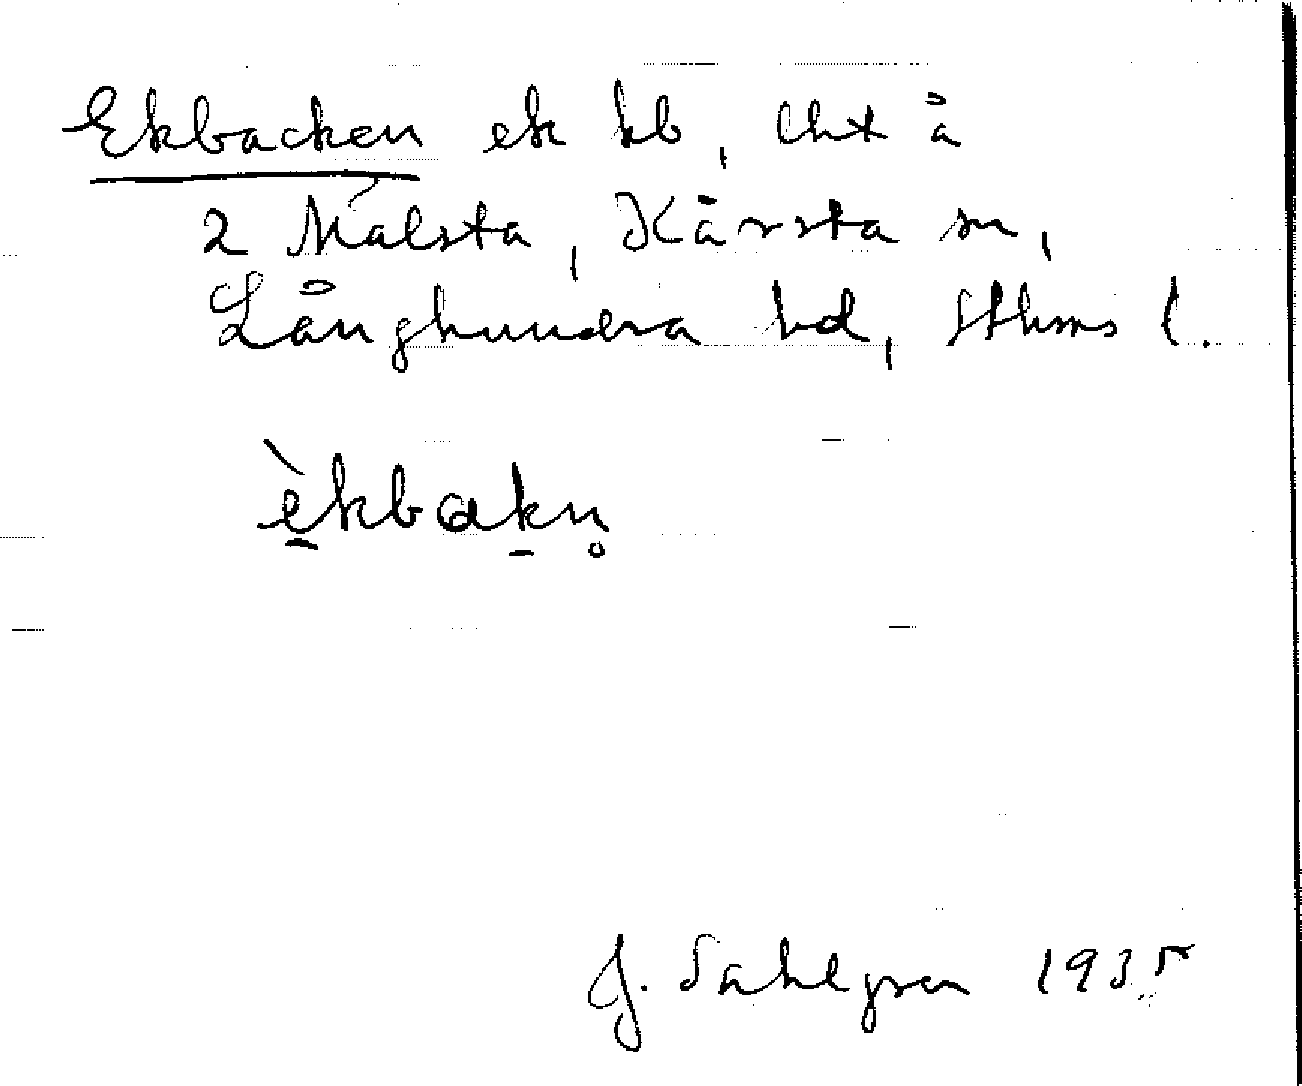 Ekbacken ek kb, lht å
2 Målsta, Kårsta sn,
Långhundra hd, Sthms l.
èkbakn̥
J. Sahlgren 1935